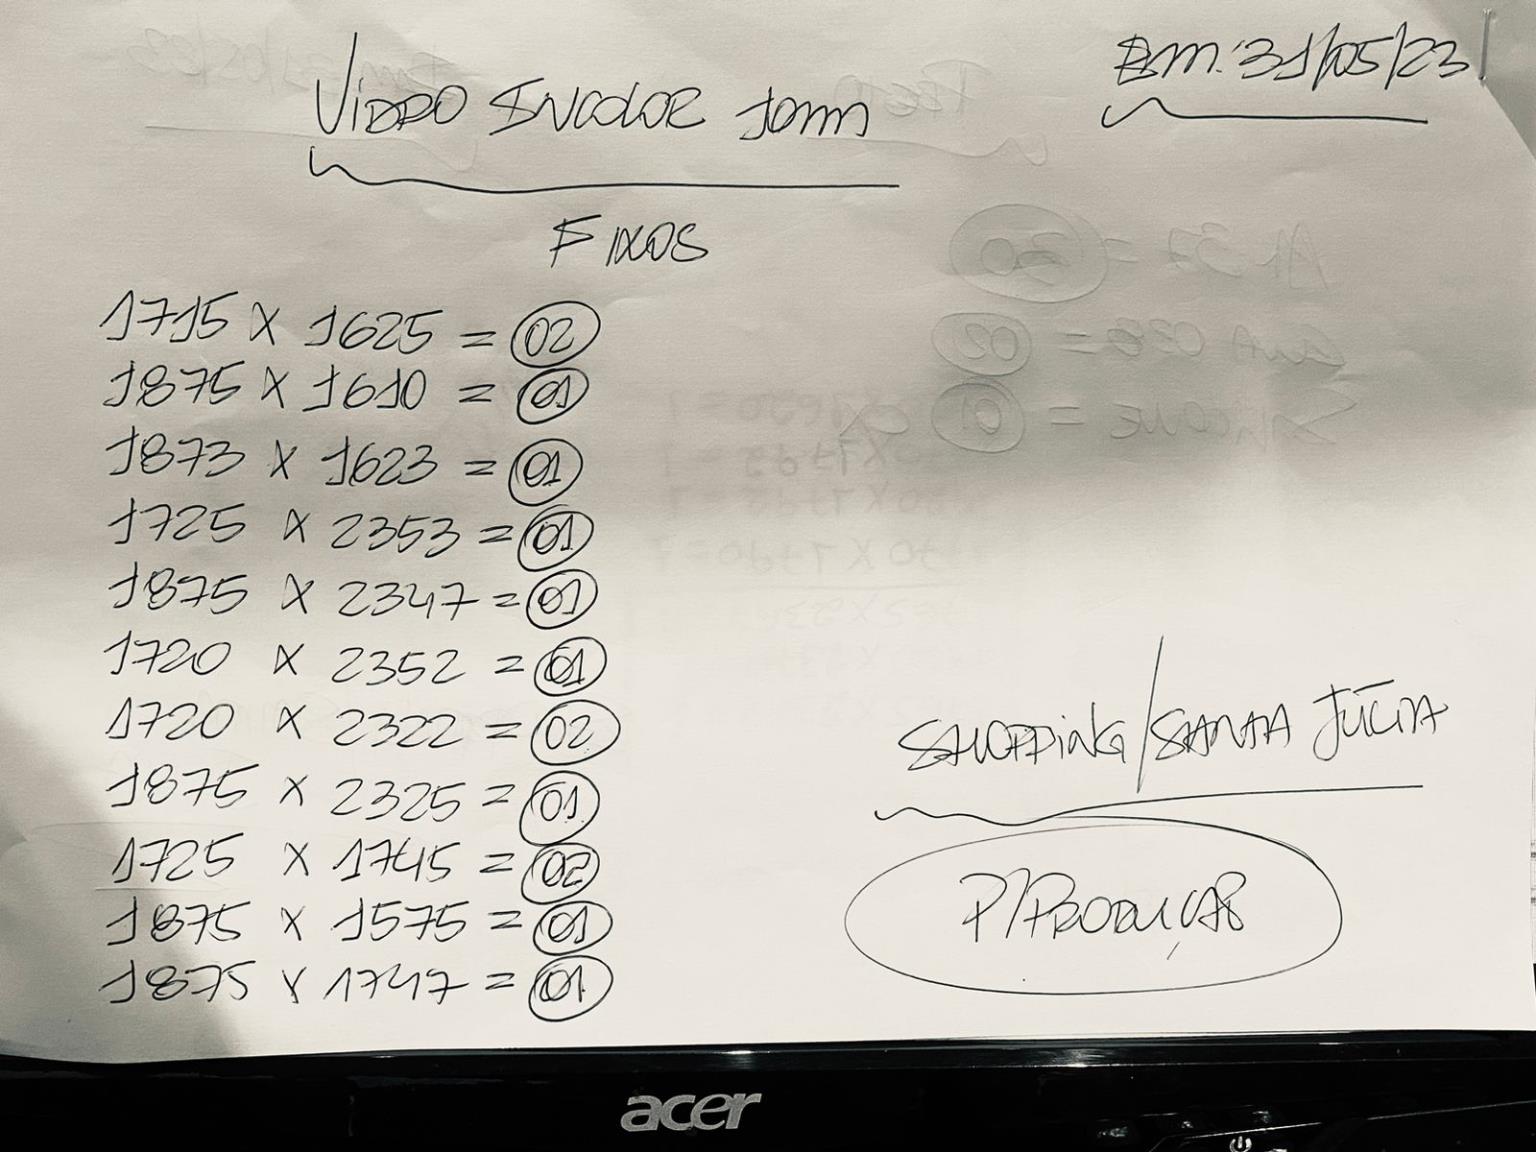 Em: 31/05/23
VIDRO INCOLOR 10mm
FIXOS
1715 X 1625 = 02
1875 X 1610 = 01
1873 X 1623 = 01
1725 X 2353 = 01
1875 X 2347 = 01
1720 X 2352 = 01
1720 X 2322 = 02
1875 X 2325 = 01
1725 X 1745 = 02
1875 X 1575 = 01
1875 X 1747 = 01
SHOPPING/SANTA
P/PRODUÇÃO
acer